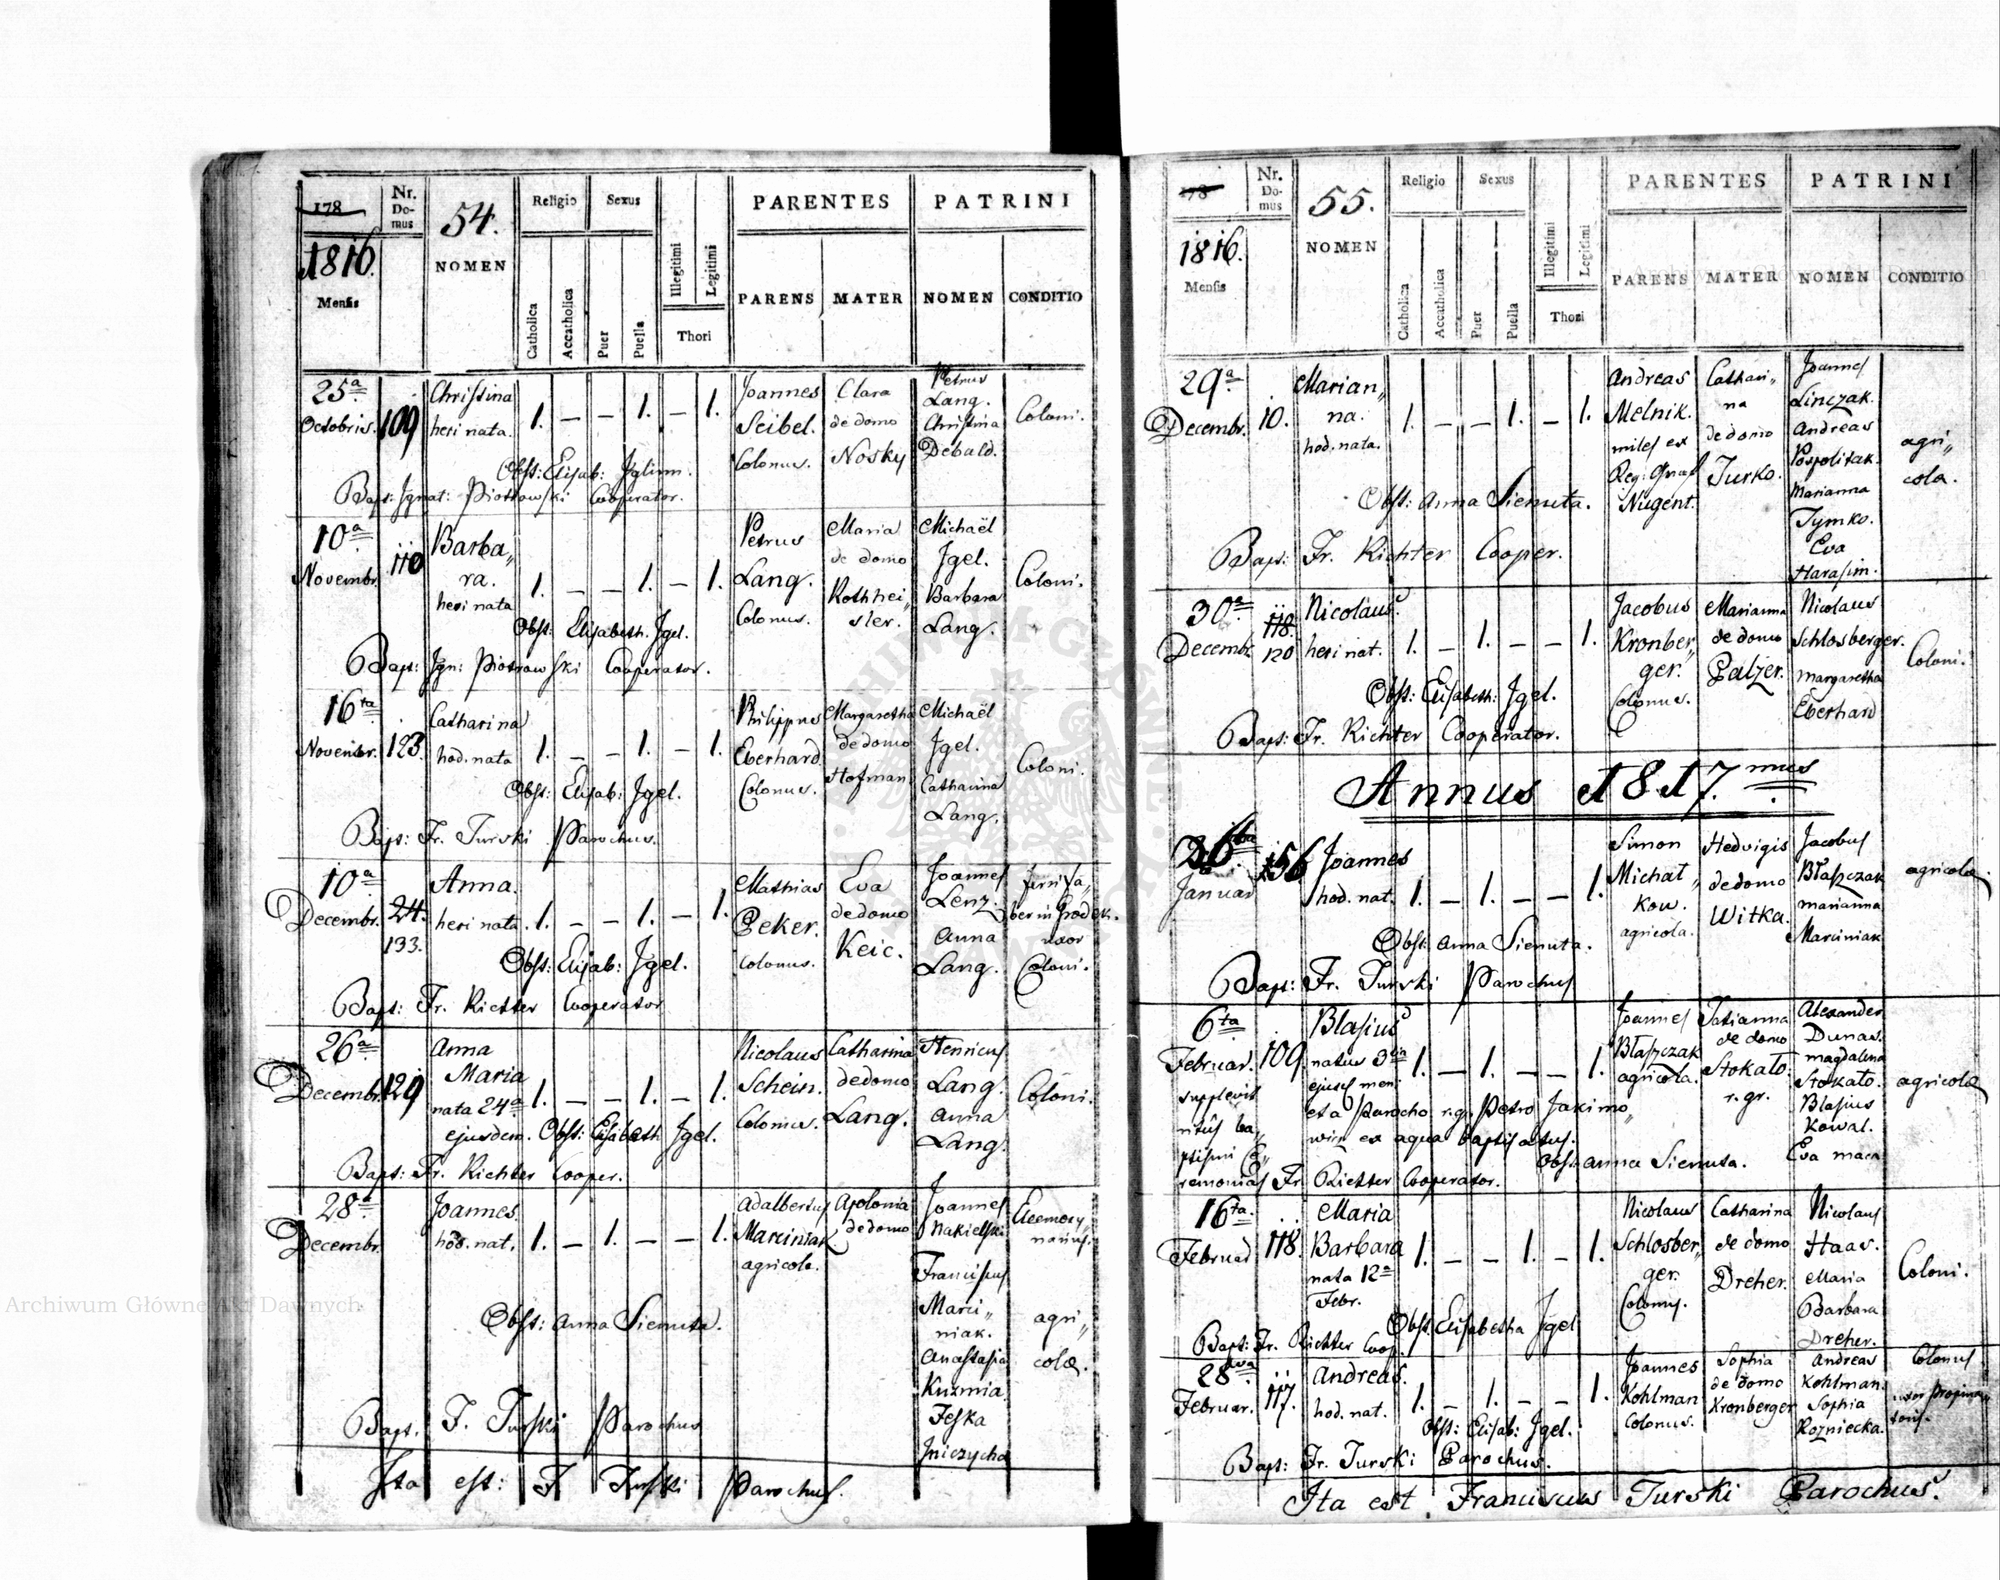 178
Nr. Domus
54.
Religio
Sexus
PARENTES
PATRINI
1816.
Mensis
NOMEN
Catholica
Accatholica
Puer
Puella
Illegitimi
Legitimi
Thori
PARENS
MATER
NOMEN
CONDITIO
25a Octobris. 109 Christina heri nata. 1. – – 1. – 1. Joannes Seibel. Colonus. Clara de domo Nosky Petrus Lang. Christina Debald. Coloni.
Obst: Elisab: Jglium.
Bapt: Jgnat: Piotrowski Cooperator.
10a Novembr. 110 Barba„ra. heri nata 1. – – 1. – 1. Petrus Lang. Colonus. Maria de domo Rothhei„sler. Michaël Jgel. Barbara Lang. Coloni.
Obst: Elisabeth. Jgel.
Bapt: Jgn: Piotrowski Cooperator.
16ta Novembr. 123. Catharina hod. nata 1. – – 1. – 1. Philippus Eberhard Colonus. Margaretha de domo Hofman. Michaël Jgel. Catharina Lang. Coloni.
Obst: Elisab: Jgel.
Bapt: Fr. Turski Parochus.
10a Decembr. 24. 133. Anna. heri nata. 1. – – 1. – 1. Mathias Peker. Colonus. Eva de domo Keic. Joannes Lenz. Anna Lang. ber in Grodek. uxor Coloni.
Obst: Elisab: Jgel.
Bapt: Fr. Richter Cooperator
26a Decembr. 129 Anna Maria nata 24a ejusdem. 1. – – 1. – 1. Nicolaus Schein. Colonus. Catharina de domo Lang. Henricus Lang. Anna Lang. Coloni.
Obst: Elisabeth Jgel.
Bapt: Fr. Richter Cooper.
28a Decembr. Joannes. hod. nat. 1. – 1. – – 1. Adalbertus Marciniak agricola. Apolonia de domo Joannes Nakielski Franciscus Marci„niak. Anastasia Kuzmia Teska Jniczycha Eleemosy„narius. agri„colæ.
Obst: Anna Sienuta.
Bapt. F. Turski Parochus
Ita est: F Turski Parochus.
178
Nr. Domus
55.
Religio
Sexus
PARENTES
PATRINI
1816.
Mensis
NOMEN
Catholica
Accatholica
Puer
Puella
Illegitimi
Legitimi
Thori
PARENS
MATER
NOMEN
CONDITIO
29a Decembr. 10. Marian„na. hod. nata. 1. – – 1. – 1. Andreas Melnik. miles ex Reg: Graf Nugent. Cathari„na de domo Turko. Joannes Linczak. Andreas Pospolitak. Marianna Tymko. Eva Harasim. agri„cola.
Obst: Anna Sienuta.
Bapt: Fr. Richter Cooper.
30a Decembr. 118. 120 Nicolaus heri nat. 1. – 1. – – 1. Jacobus Kronber„ger. Colonus. Marianna de domo Palzer. Nicolaus Schlosberger. Margaretha Eberhard Coloni.
Obst: Elisabeth: Jgel.
Bapt: Fr. Richter Cooperator.
Annus 1817.mus
26ta Januar 156 Joannes hod. nat. 1. – 1. – – 1. Simon Michał„kow. agricola. Hedvigis de domo Witka. Jacobus Błaszczak Marianna Marciniak agricolæ
Obst: Anna Sienuta.
Bapt: Fr. Turski Parochus
6ta Februar. 109. Blasius natus 3tia ejusd. men: 1. – 1. – – 1. Joannes Błaszczak agricola. Tatianna de domo Stokało. r. gr. Alexander Dunas. Magdalena Stokało. Blasius Kowal. Eva maca agricolæ
et a Parocho r. gr. Petro Jakimo„
wicz ex aqua baptisatus.
supplevit ritus ba„ptismi Ce„remonias Fr. Richter Cooperator.
Obst: Anna Sienuta.
16ta. Februar 118. Maria Barbara nata 12a Febr. 1. – – 1. – 1. Nicolaus Schlosber„ger. Colonus. Catharina de domo Dreher. Nicolaus Haas. Maria Barbara Dreher. Coloni.
Obst: Elisabetha Jgel
Bapt: Fr. Richter Coop.
28va Februar. 117. Andreas. hod. nat. 1. – 1. – – 1. Joannes Kohlman Colonus. Sophia de domo Kronberger Andreas Kohlman. Sophia Rozniecka. Colonus uxor propina„toris.
Obst: Elisab: Jgel.
Bapt: Fr. Turski Parochus.
Ita est Franciscus Turski Parochus.
Archiwum Główne Akt Dawnych